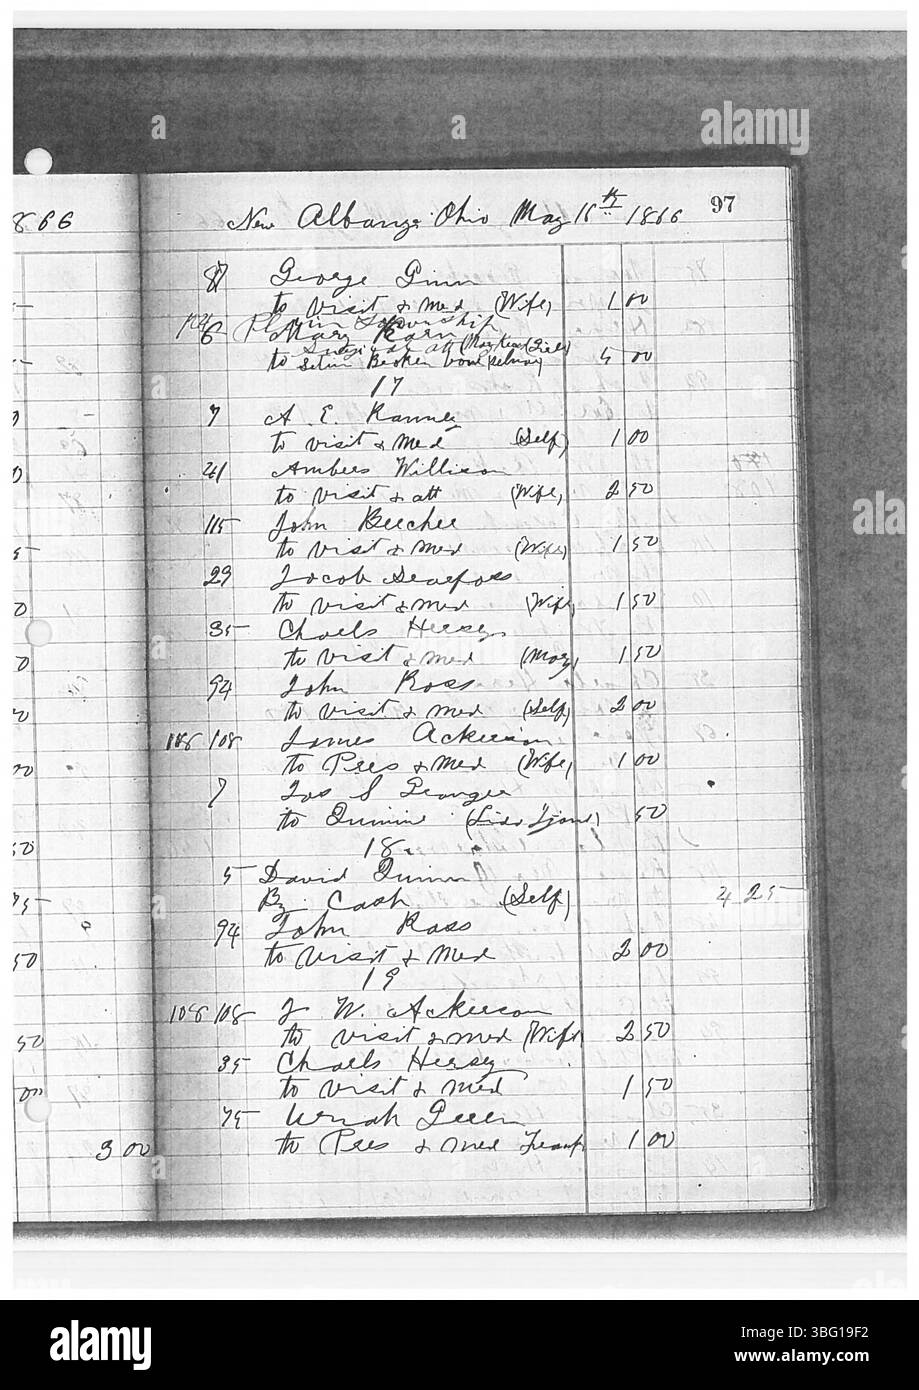 866
New Albany Ohio May 16th 1866 97
87 George Ginn
to visit & med (Wife) 1 00
124 Plain Township
6 Mary Karn
to Surgical att (Mary Karn
Setin Broken bone 5 00
17
7 A. E. Ranney
to visit & Med (Self) 1 00
41 Ambers Willison
to visit & att (Wife) 2 50
115 John Beecher
to visit & med (Wife) 1 50
29 Jacob
to visit & med (Wife 1 50
35 Charls Hersey
to visit & med (Mary) 1 50
94 John Ross
to visit & med (Self) 2 00
108 108 James Ackerson
to Pres & med (Wife) 1 00
7 Jos S
to Quinine 50
18.
5 David
By Cash (Self) 4 25
94 John Ross
to visit & Med 2 00
19
108 108 J W. Ackerson
to visit & med (Wife) 2 50
35 Charls Hersey
to visit & med 1 50
75 Uriah
to Pres & med 1 00
3 00
alamy
Image ID: 3BG19F2
www.alamy.com